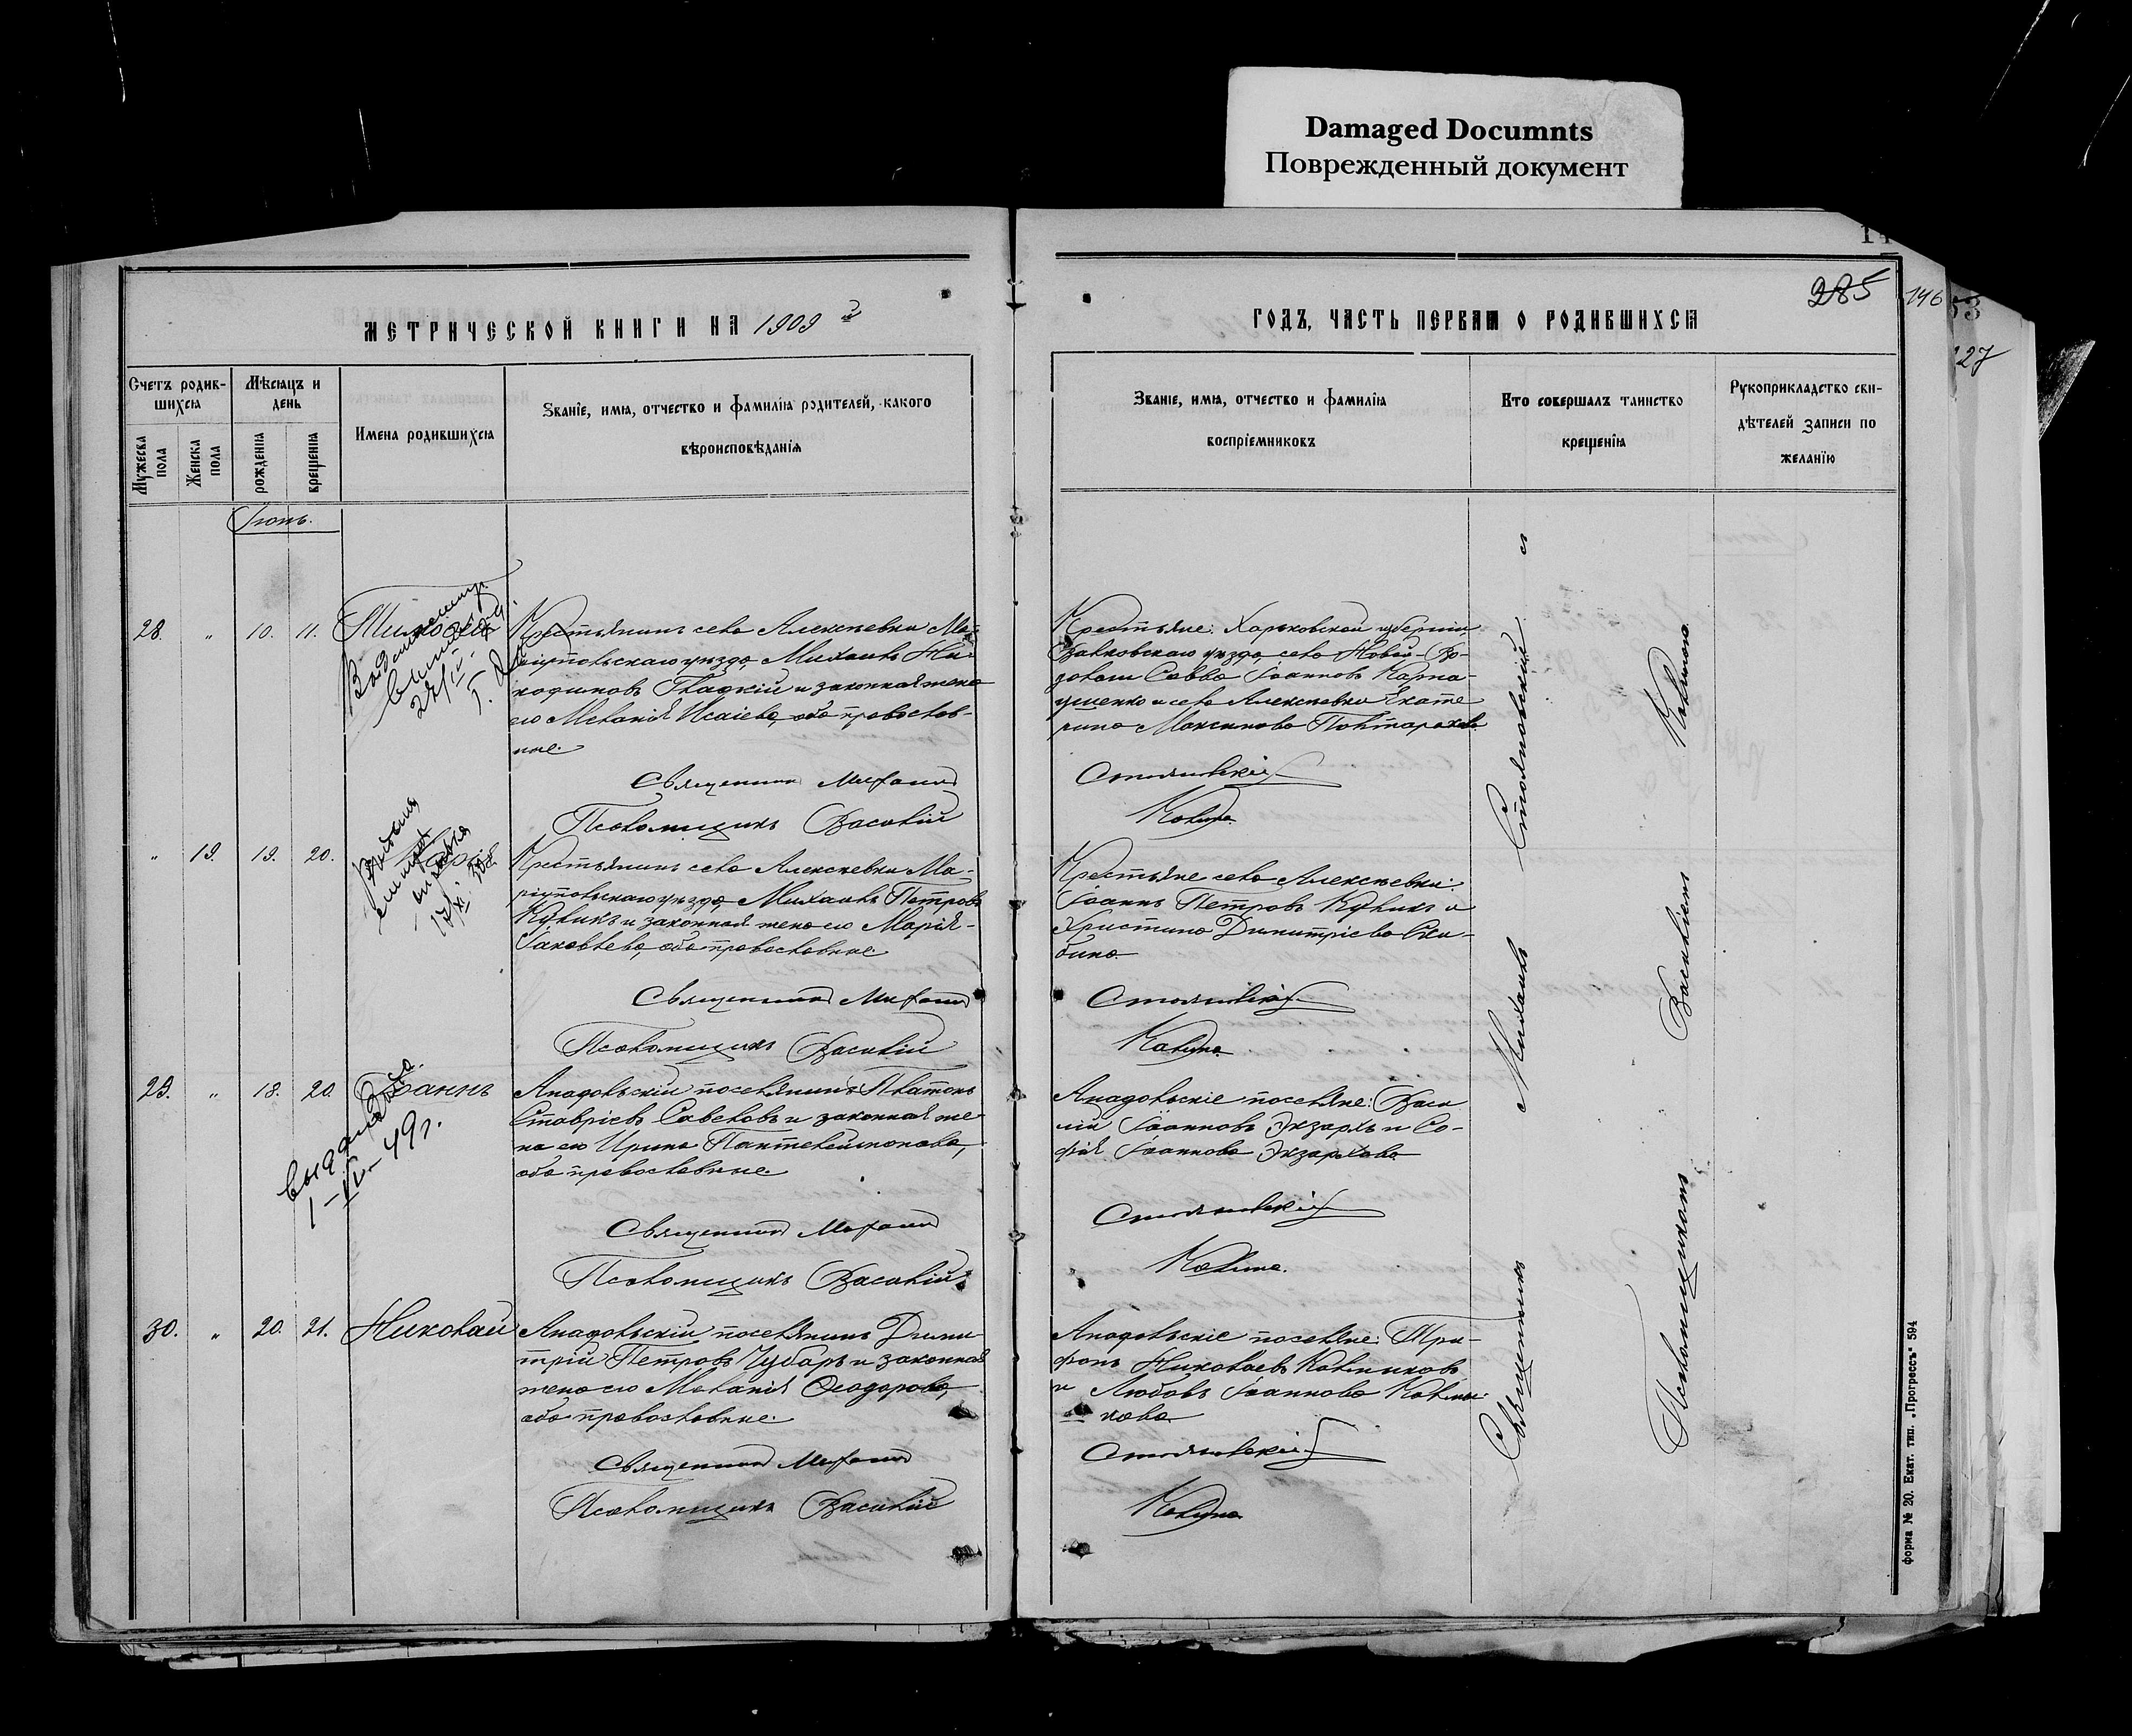 Damaged Documnts
Поврежденный документ
285
146
53
127
МЕТРИЧЕСКОЙ КНИГИ НА 1909 й
ГОДЪ, ЧАСТЬ ПЕРВАЯ О РОДИВШИХСЯ
Счетъ родив-
шихся
Мужеска пола
Женска пола
Мѣсяцъ и
день
рожденія
крещенія
Имена родившихся
Званіе, имя, отчество и фамилія родителей, какого
вѣроисповѣданія
Званіе, имя, отчество и фамилія
воспріемниковъ
Кто совершалъ таинство
крещенія
Рукоприкладство сви-
дѣтелей записи по
желанію
Іюнь.
28. " 10. 11.
Крестьянинъ села Алексѣевки Ма-
ріупольскаго уѣзда, Михаилъ Ни-
кодимовъ Гладкій и законная жена
его Меланія Исаіева, оба православ-
ные.
Священникъ Михаилъ
Псаломщикъ Василій
Крестьяне: Харьковской губерніи,
Валковскаго уѣзда, села Новой-Во-
долаги Савва Іоанновъ Карна-
ушенко и села Алексѣевки Екате
рина Максимова Полтарахова.
Стояновскій
Калина.
" 19. 19. 20. Марія.
Крестьянинъ села Алексѣевки Ма-
ріупольскаго уѣзда, Михаилъ Петровъ
Куликъ и законная жена его Марія
Іаковлева, оба православные
Священникъ Михаилъ
Псаломщикъ Василій
Крестьяне села Алексѣевки:
Іоаннъ Петровъ Куликъ и
Христина Димитріева Ски-
бина.
Стояновскій
Калина.
29. " 18. 20. Іоаннъ
выдано
1-IV-49г.
Анадольскій поселянинъ Платонъ
Ставріевъ Савеловъ и законная же-
на его Ирина Пантелеимонова,
оба православные.
Священникъ Михаилъ
Псаломщикъ Василій
Анадольскіе поселяне: Васи
лій Іоанновъ Экзархъ и Со-
фія Іоаннова Экзархова.
Стояновскій
Калина.
30. " 20. 21. Николай
Анадольскій поселянинъ Дими-
трій Петровъ Чубарь и законная
жена его Меланія Ѳеодорова,
оба православные.
Священникъ Михаилъ
Псаломщикъ Василій
Анадольскіе поселяне: Три-
фонъ Николаевъ Калмыковъ
и Любовь Іоаннова Калмы-
кова.
Стояновскій
Калина.
Священникъ Михаилъ Стояновскій съ
Псаломщикомъ Василіемъ Калиною.
форма № 20. Екат. тип. „Прогрессъ" 594